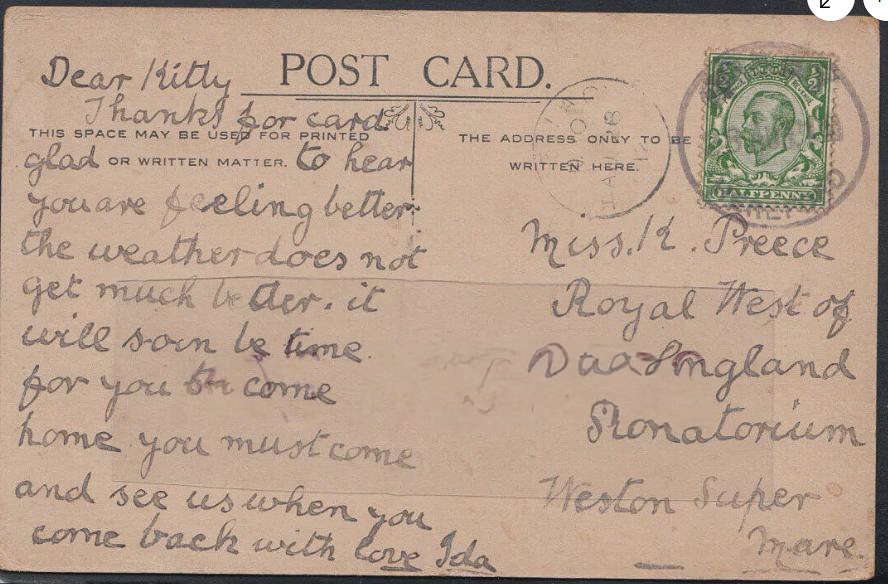 Dear Kitty
POST CARD.
Thanks for card
THIS SPACE MAY BE USED FOR PRINTED
glad OR WRITTEN MATTER. to hear
you are feeling better
the weather does not
get much better. it
will soon be time
for you to come
home you must come
and see us when you
come back with love Ida
THE ADDRESS ONLY TO BE
WRITTEN HERE.
HALFPENNY
Miss. K. Preece
Royal West of
England
Sonatorium
Weston Super
Mare.